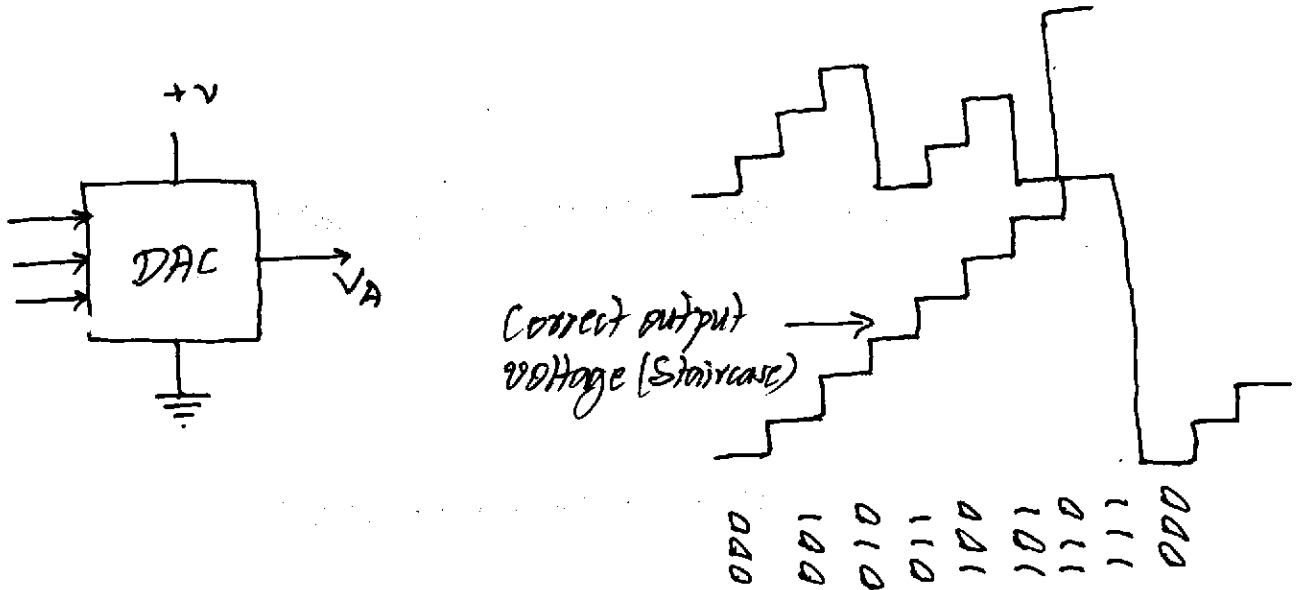 +V
DAC
VA
Correct output
voltage (Staircase)
000
001
010
011
100
101
110
111
000